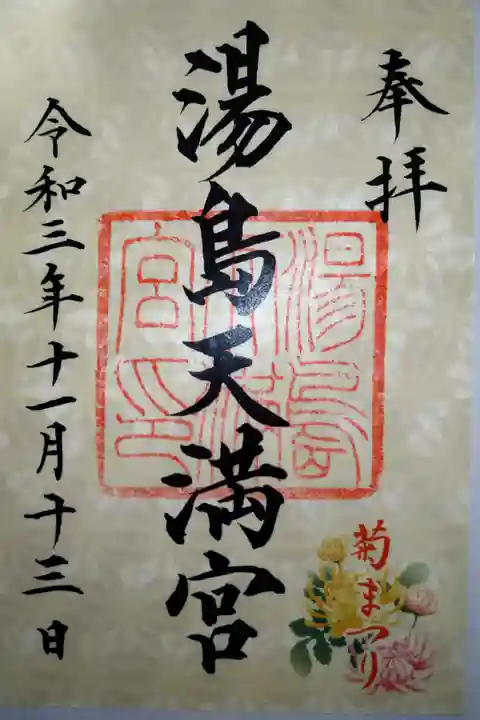 奉拝
湯島天満宮
湯島天満宮印
菊まつり
令和三年十一月十三日